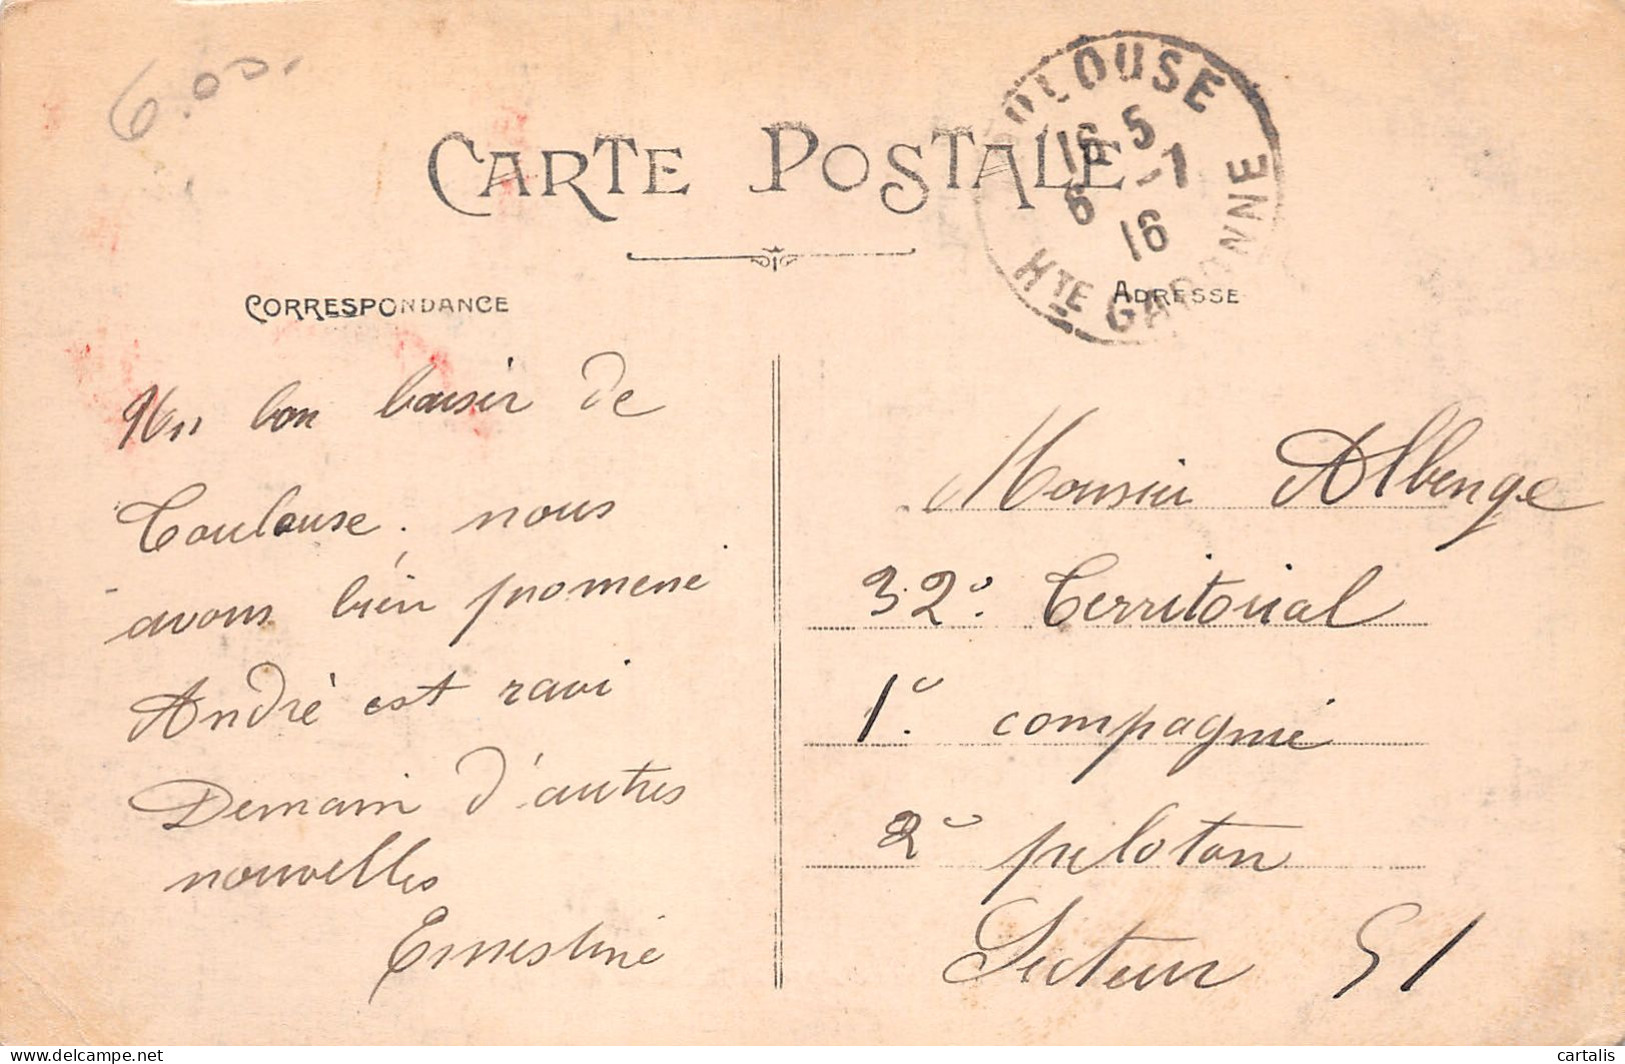 6.00.
CARTE POSTALE
TOULOUSE
16 5
6 -1
16
HTE GARONNE
CORRESPONDANCE
ADRESSE
Un bon baiser de
Toulouse. nous
avons bien promené
André est ravi
Demain d'autres
nouvelles
Ernestine
Monsieur Albenge
32e. Territorial
1e. compagnie
2e peloton
Secteur 51
delcampe.net
cartalis